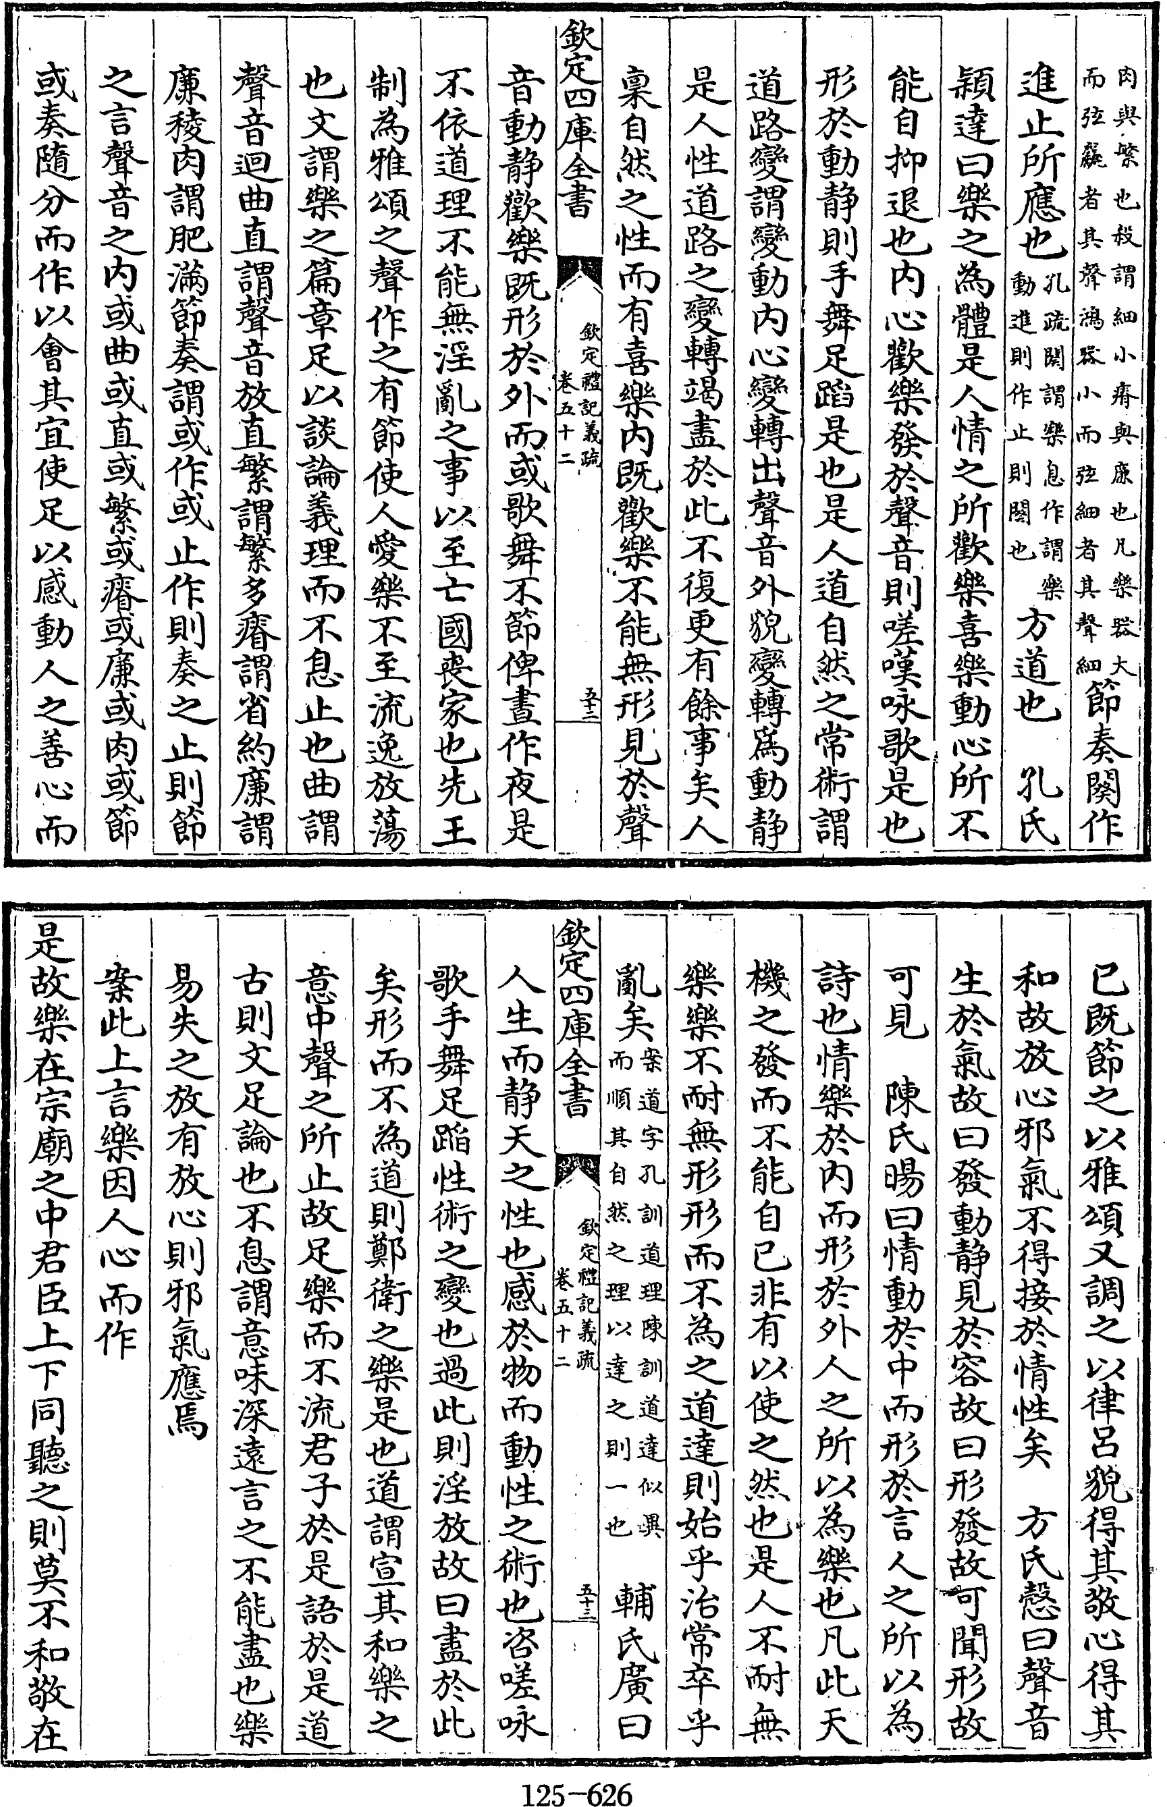 肉與繁也殺謂細小瘠與廉也凡樂器大
而弦麤者其聲鴻器小而弦細者其聲細
節奏闋作
進止所應也
孔疏闋謂樂息作謂樂
動進則作止則闋也
方道也　孔氏
穎達曰樂之為體是人情之所歡樂喜樂動心所不
能自抑退也内心歡樂發於聲音則嗟嘆咏歌是也
形於動静則手舞足蹈是也是人道自然之常術謂
道路變謂變動内心變轉出聲音外貌變轉爲動静
是人性道路之變轉竭盡於此不復更有餘事矣人
稟自然之性而有喜樂内既歡樂不能無形見於聲
欽定四庫全書
欽定禮記義疏
卷五十二
五十二
音動静歡樂既形於外而或歌舞不節俾晝作夜是
不依道理不能無淫亂之事以至亡國喪家也先王
制為雅頌之聲作之有節使人愛樂不至流逸放蕩
也文謂樂之篇章足以談論義理而不息止也曲謂
聲音迴曲直謂聲音放直繁謂繁多瘠謂省約廉謂
廉稜肉謂肥滿節奏謂或作或止作則奏之止則節
之言聲音之内或曲或直或繁或瘠或廉或肉或節
或奏隨分而作以會其宜使足以感動人之善心而
已既節之以雅頌又調之以律呂貌得其敬心得其
和故放心邪氣不得接於情性矣　方氏慤曰聲音
生於氣故曰發動静見於容故曰形發故可聞形故
可見　陳氏暘曰情動於中而形於言人之所以為
詩也情樂於内而形於外人之所以為樂也凡此天
機之發而不能自已非有以使之然也是人不耐無
樂樂不耐無形形而不為之道達則始乎治常卒乎
亂矣
案道字孔訓道理陳訓道達似異
而順其自然之理以達之則一也
輔氏廣曰
欽定四庫全書
欽定禮記義疏
卷五十二
五十三
人生而静天之性也感於物而動性之術也咨嗟咏
歌手舞足蹈性術之變也過此則淫放故曰盡於此
矣形而不為道則鄭衛之樂是也道謂宣其和樂之
意中聲之所止故足樂而不流君子於是語於是道
古則文足論也不息謂意味深遠言之不能盡也樂
易失之放有放心則邪氣應焉
案此上言樂因人心而作
是故樂在宗廟之中君臣上下同聽之則莫不和敬在
125-626